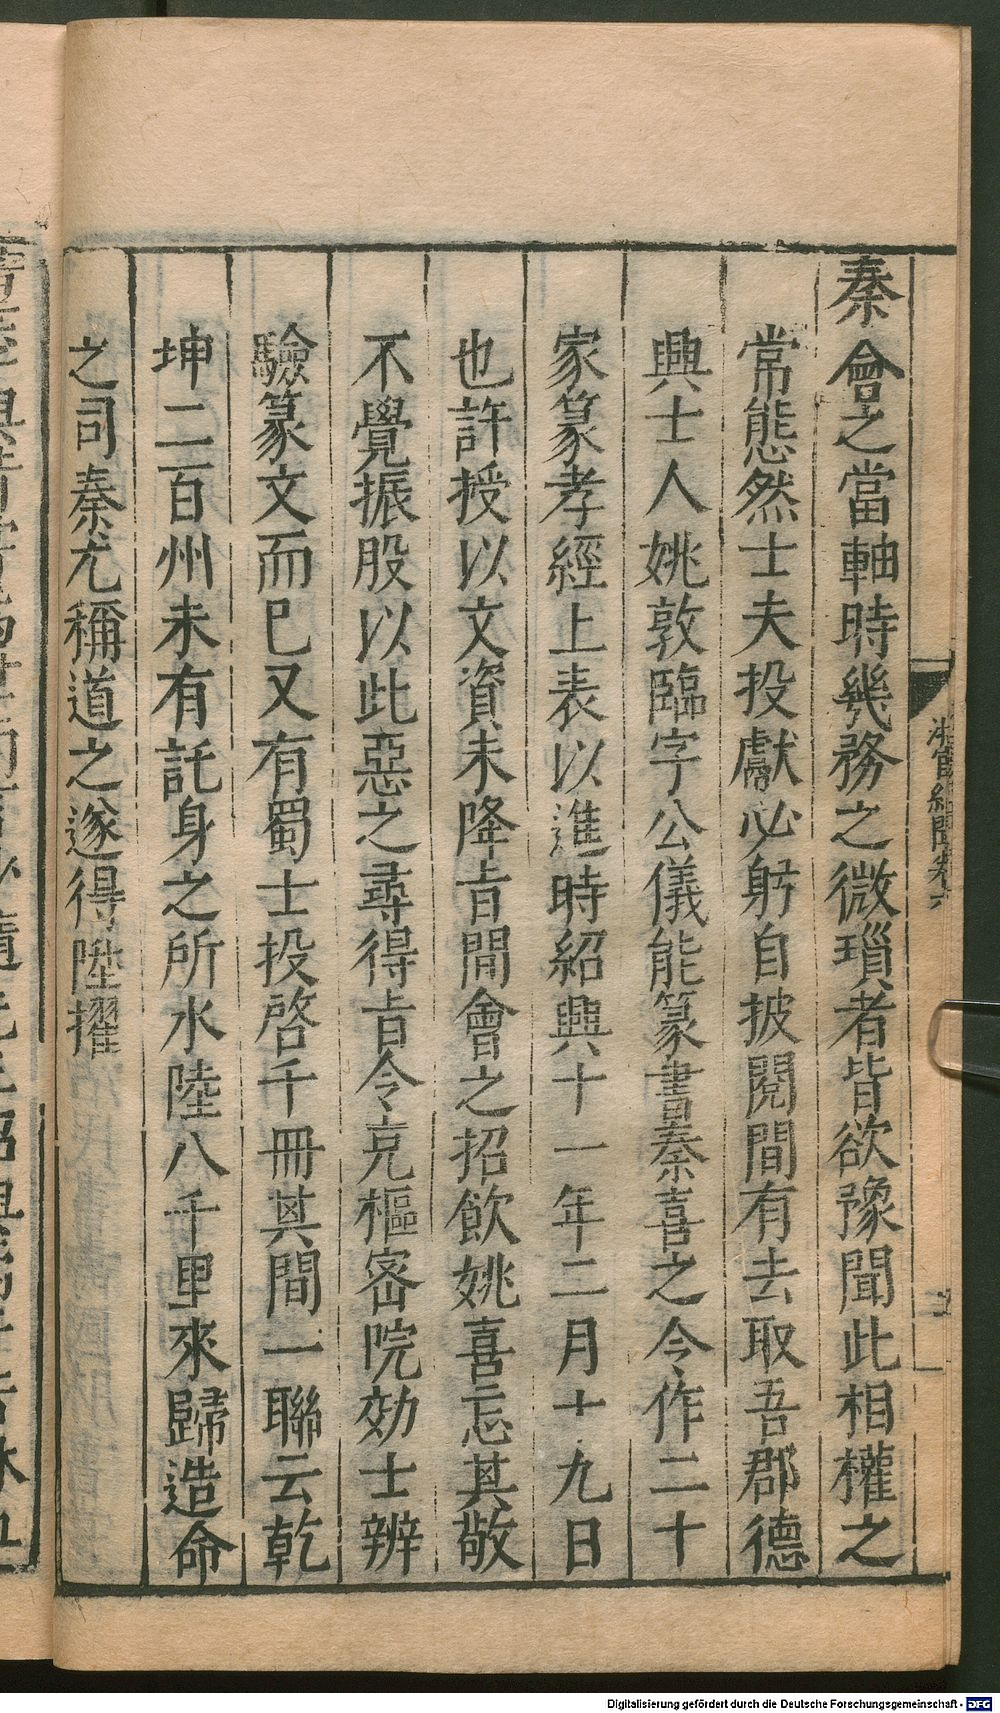 秦會之當軸時幾務之微瑣者皆欲豫聞此相權之
常態然士夫投獻必躬自披閱間有去取吾郡德
興士人姚敦臨字公儀能篆書秦喜之令作二十
家篆孝經上表以進時紹興十一年二月十九日
也許授以文資未降旨間會之招飲姚喜忘其敬
不覺振股以此惡之尋得旨令充樞密院効士辨
驗篆文而已又有蜀士投啓千冊其間一聯云乾
坤二百州未有託身之所水陸八千里來歸造命
之司秦尤稱道之遂得陞擢
卷六
Digitalisierung gefördert durch die Deutsche Forschungsgemeinschaft - DFG